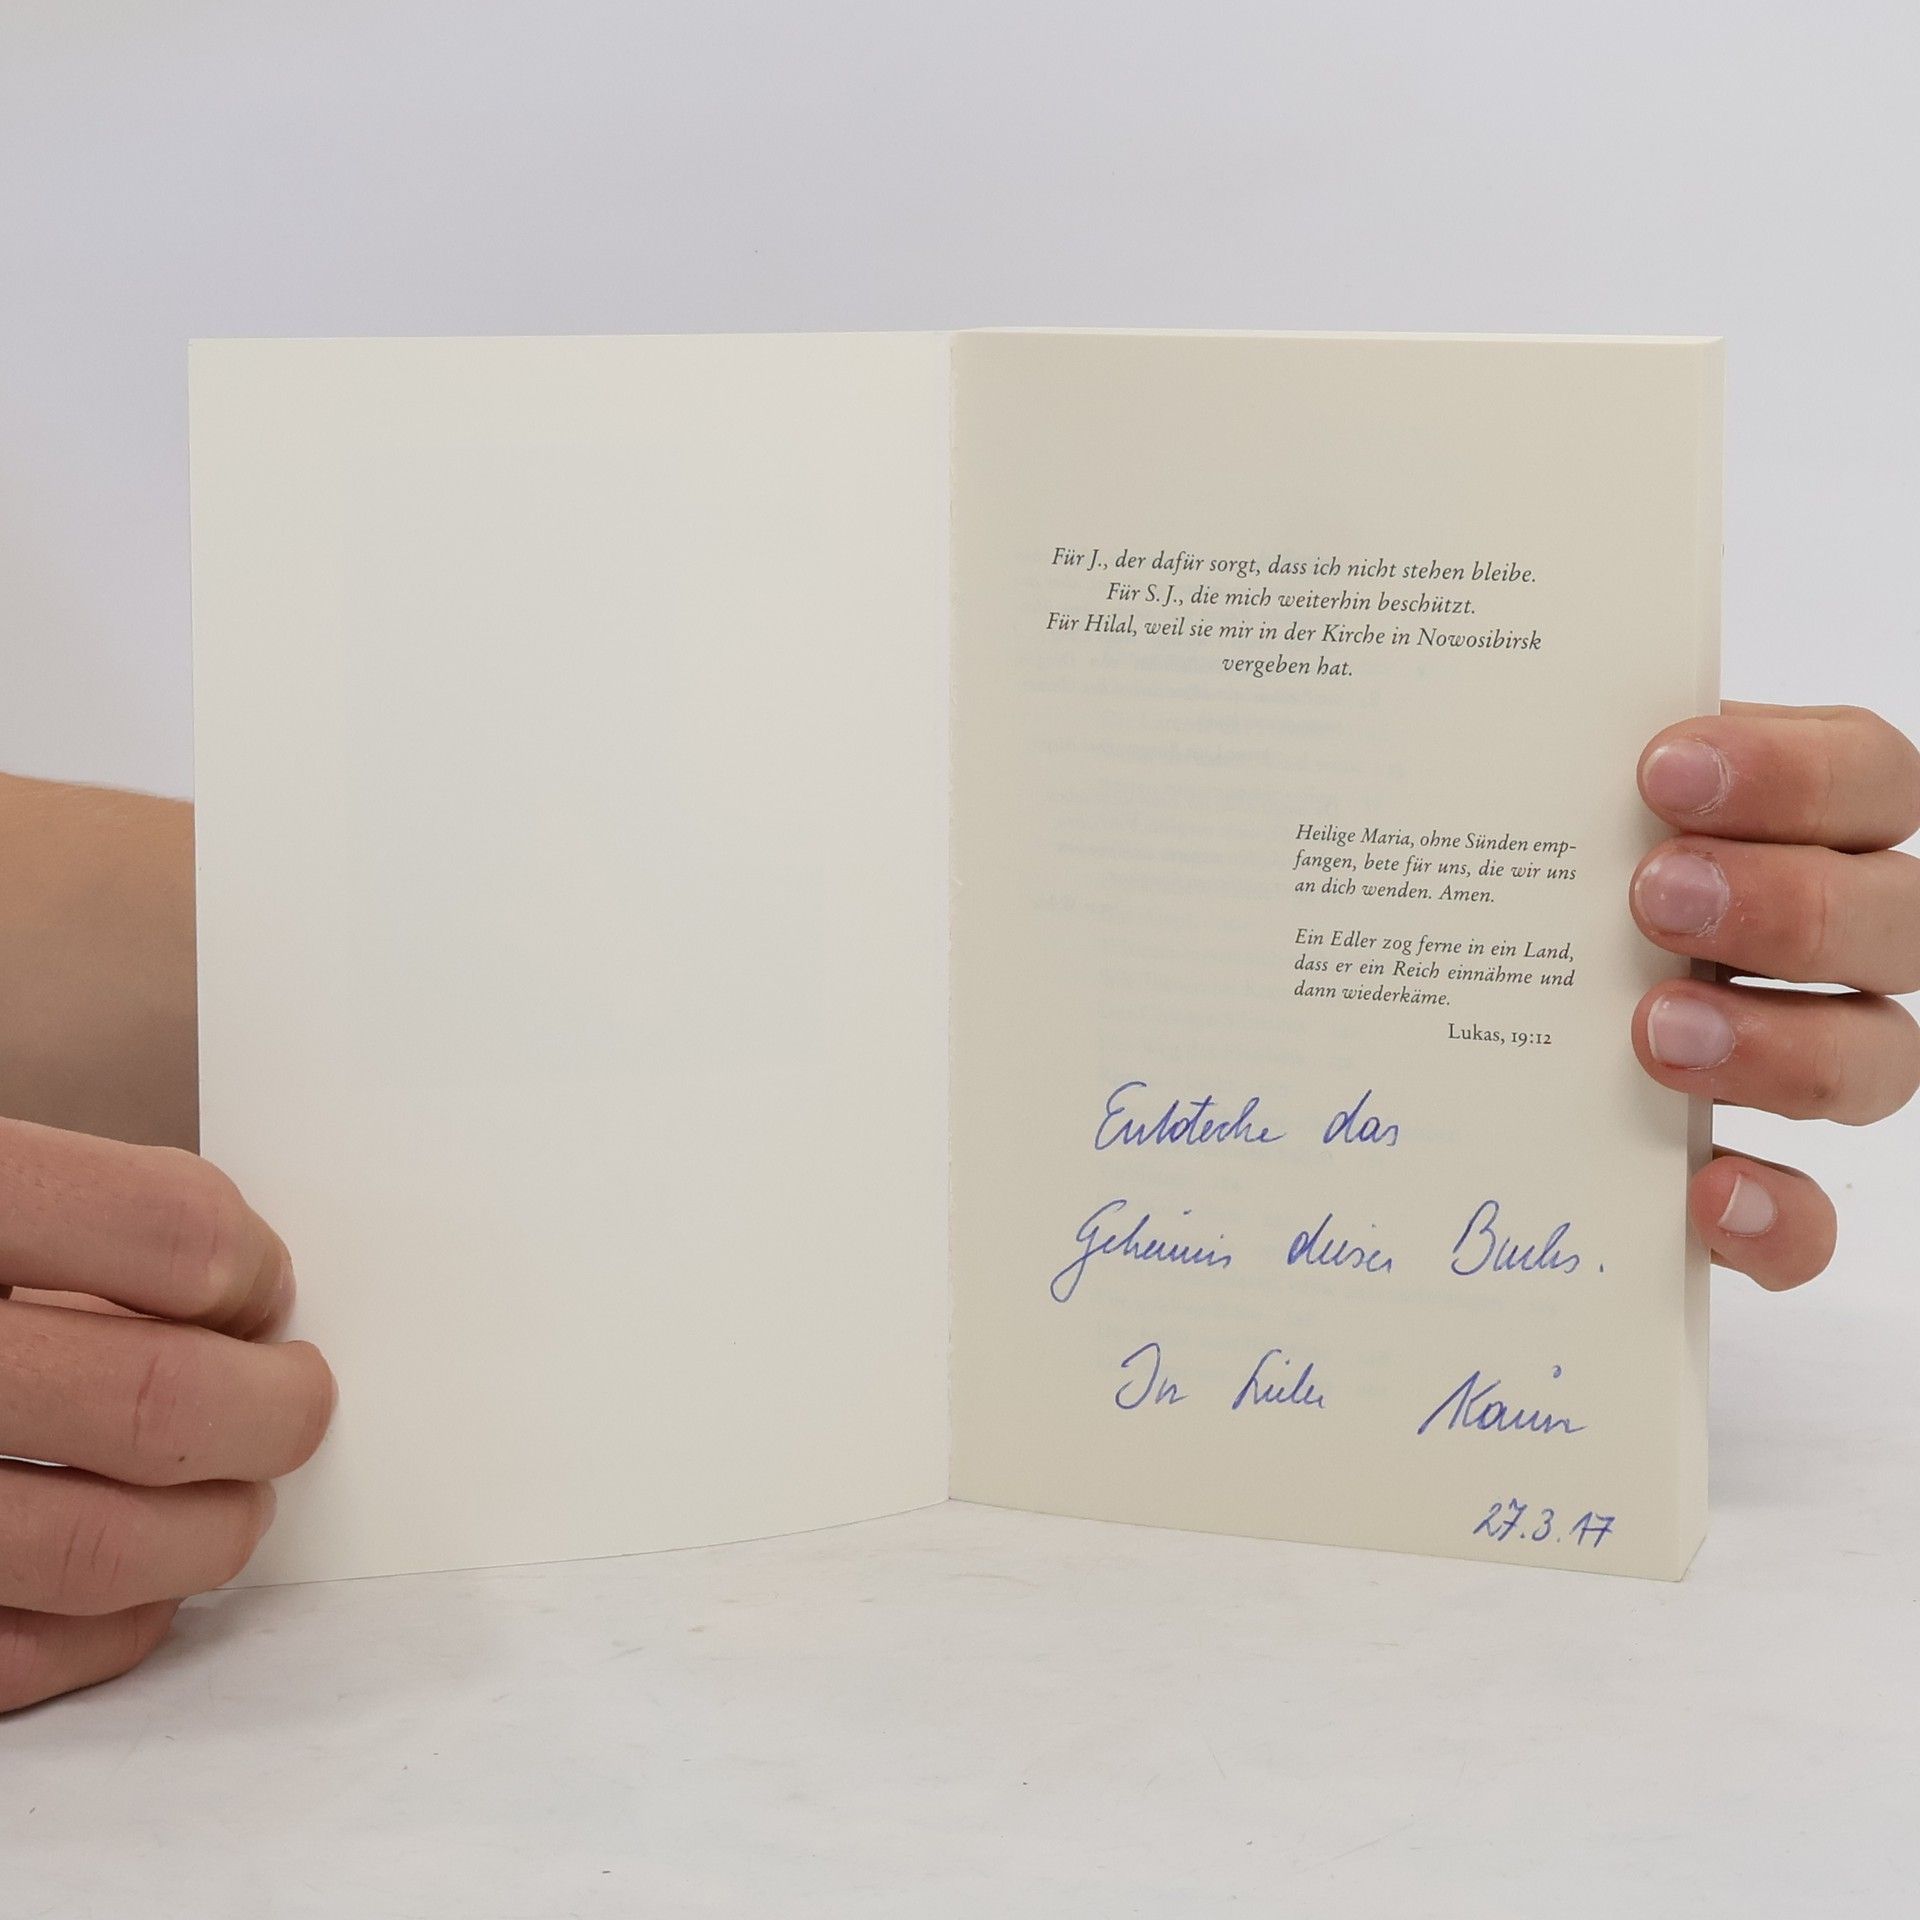 Für J., der dafür sorgt, dass ich nicht stehen bleibe.
Für S. J., die mich weiterhin beschützt.
Für Hilal, weil sie mir in der Kirche in Nowosibirsk
vergeben hat.
Heilige Maria, ohne Sünden emp-
fangen, bete für uns, die wir uns
an dich wenden. Amen.
Ein Edler zog ferne in ein Land,
dass er ein Reich einnähme und
dann wiederkäme.
Lukas, 19:12
Entdecke das
Geheimnis dieses Buchs.
In Liebe Karin
27.3.17